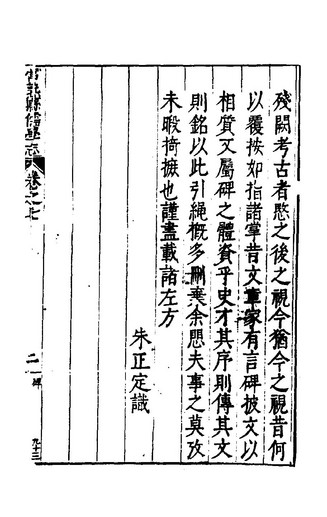 殘闕考古者愍之後之視今猶今之視昔何
以覆按如指諸掌昔文章家有言碑披文以
相質又屬碑之體資乎史才其序則傳其文
則銘以此引繩概多刪棄余思夫事之莫攷
未暇摘摭也謹盡載諸左方
朱正定識
常熟縣儒學志
卷之七
二
碑